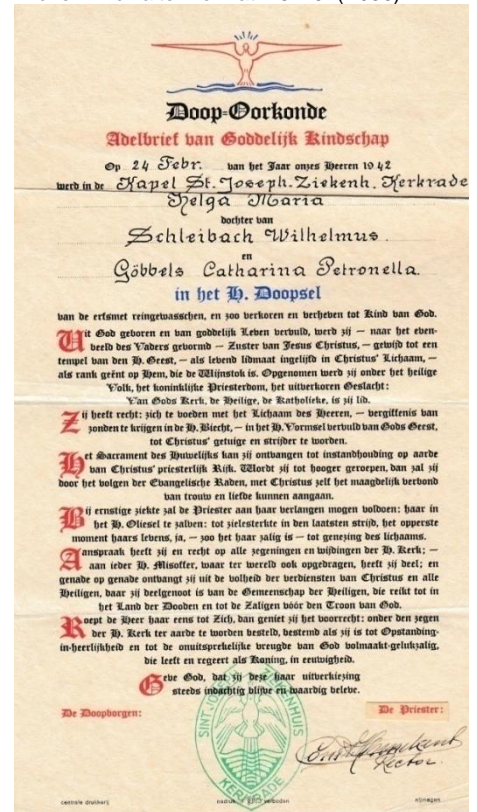 Doop=Oorkonde
Adelbrief van Goddelijk Kindschap
Op 24 Febr. van het Jaar onzes Heeren 1942
werd in de Kapel St. Joseph. Ziekenh. Kerkrade
Helga Maria
dochter van
Schleibach Wilhelmus.
en
Göbbels Catharina Petronella.
in het H. Doopsel
van de erfsmet reingewasschen, en zoo verkoren en verheven tot Kind van God.
Uit God geboren en van goddelijk Leven vervuld, werd zij — naar het even-
beeld des Vaders gevormd — Zuster van Jesus Christus, — gewijd tot een
tempel van den H. Geest, — als levend lidmaat ingelijfd in Christus' Lichaam, —
als rank geënt op Hem, die de Wijnstok is. Opgenomen werd zij onder het heilige
Volk, het koninklijke Priesterdom, het uitverkoren Geslacht:
Van Gods Kerk, de Heilige, de Katholieke, is zij lid.
Zij heeft recht: zich te voeden met het Lichaam des Heeren, — vergiffenis van
zonden te krijgen in de H. Biecht, — in het H. Vormsel vervuld van Gods Geest,
tot Christus' getuige en strijder te worden.
Het Sacrament des Huwelijks kan zij ontvangen tot instandhouding op aarde
van Christus' priesterlijk Rijk. Wordt zij tot hooger geroepen, dan zal zij
door het volgen der Evangelische Raden, met Christus zelf het maagdelijk verbond
van trouw en liefde kunnen aangaan.
Bij ernstige ziekte zal de Priester aan haar verlangen mogen voldoen: haar in
het H. Oliesel te zalven: tot zielesterkte in den laatsten strijd, het opperste
moment haars levens, ja, — zoo het haar zalig is — tot genezing des lichaams.
Aanspraak heeft zij en recht op alle zegeningen en wijdingen der H. Kerk; —
aan ieder H. Misoffer, waar ter wereld ook opgedragen, heeft zij deel; en
genade op genade ontvangt zij uit de volheid der verdiensten van Christus en alle
Heiligen, daar zij deelgenoot is van de Gemeenschap der Heiligen, die reikt tot in
het Land der Dooden en tot de Zaligen vóór den Troon van God.
Roept de Heer haar eens tot Zich, dan geniet zij het voorrecht: onder den zegen
der H. Kerk ter aarde te worden besteld, bestemd als zij is tot Opstanding-
in-heerlijkheid en tot de onuitsprekelijke vreugde van God volmaakt-gelukzalig,
die leeft en regeert als Koning, in eeuwigheid.
Geve God, dat zij deze haar uitverkiezing
steeds indachtig blijve en waardig beleve.
De Doopborgen:
De Priester:
SINT JOSEPH ZIEKENHUIS
KERKRADE
Rector.
centrale drukkerij
nadruk verboden
nijmegen